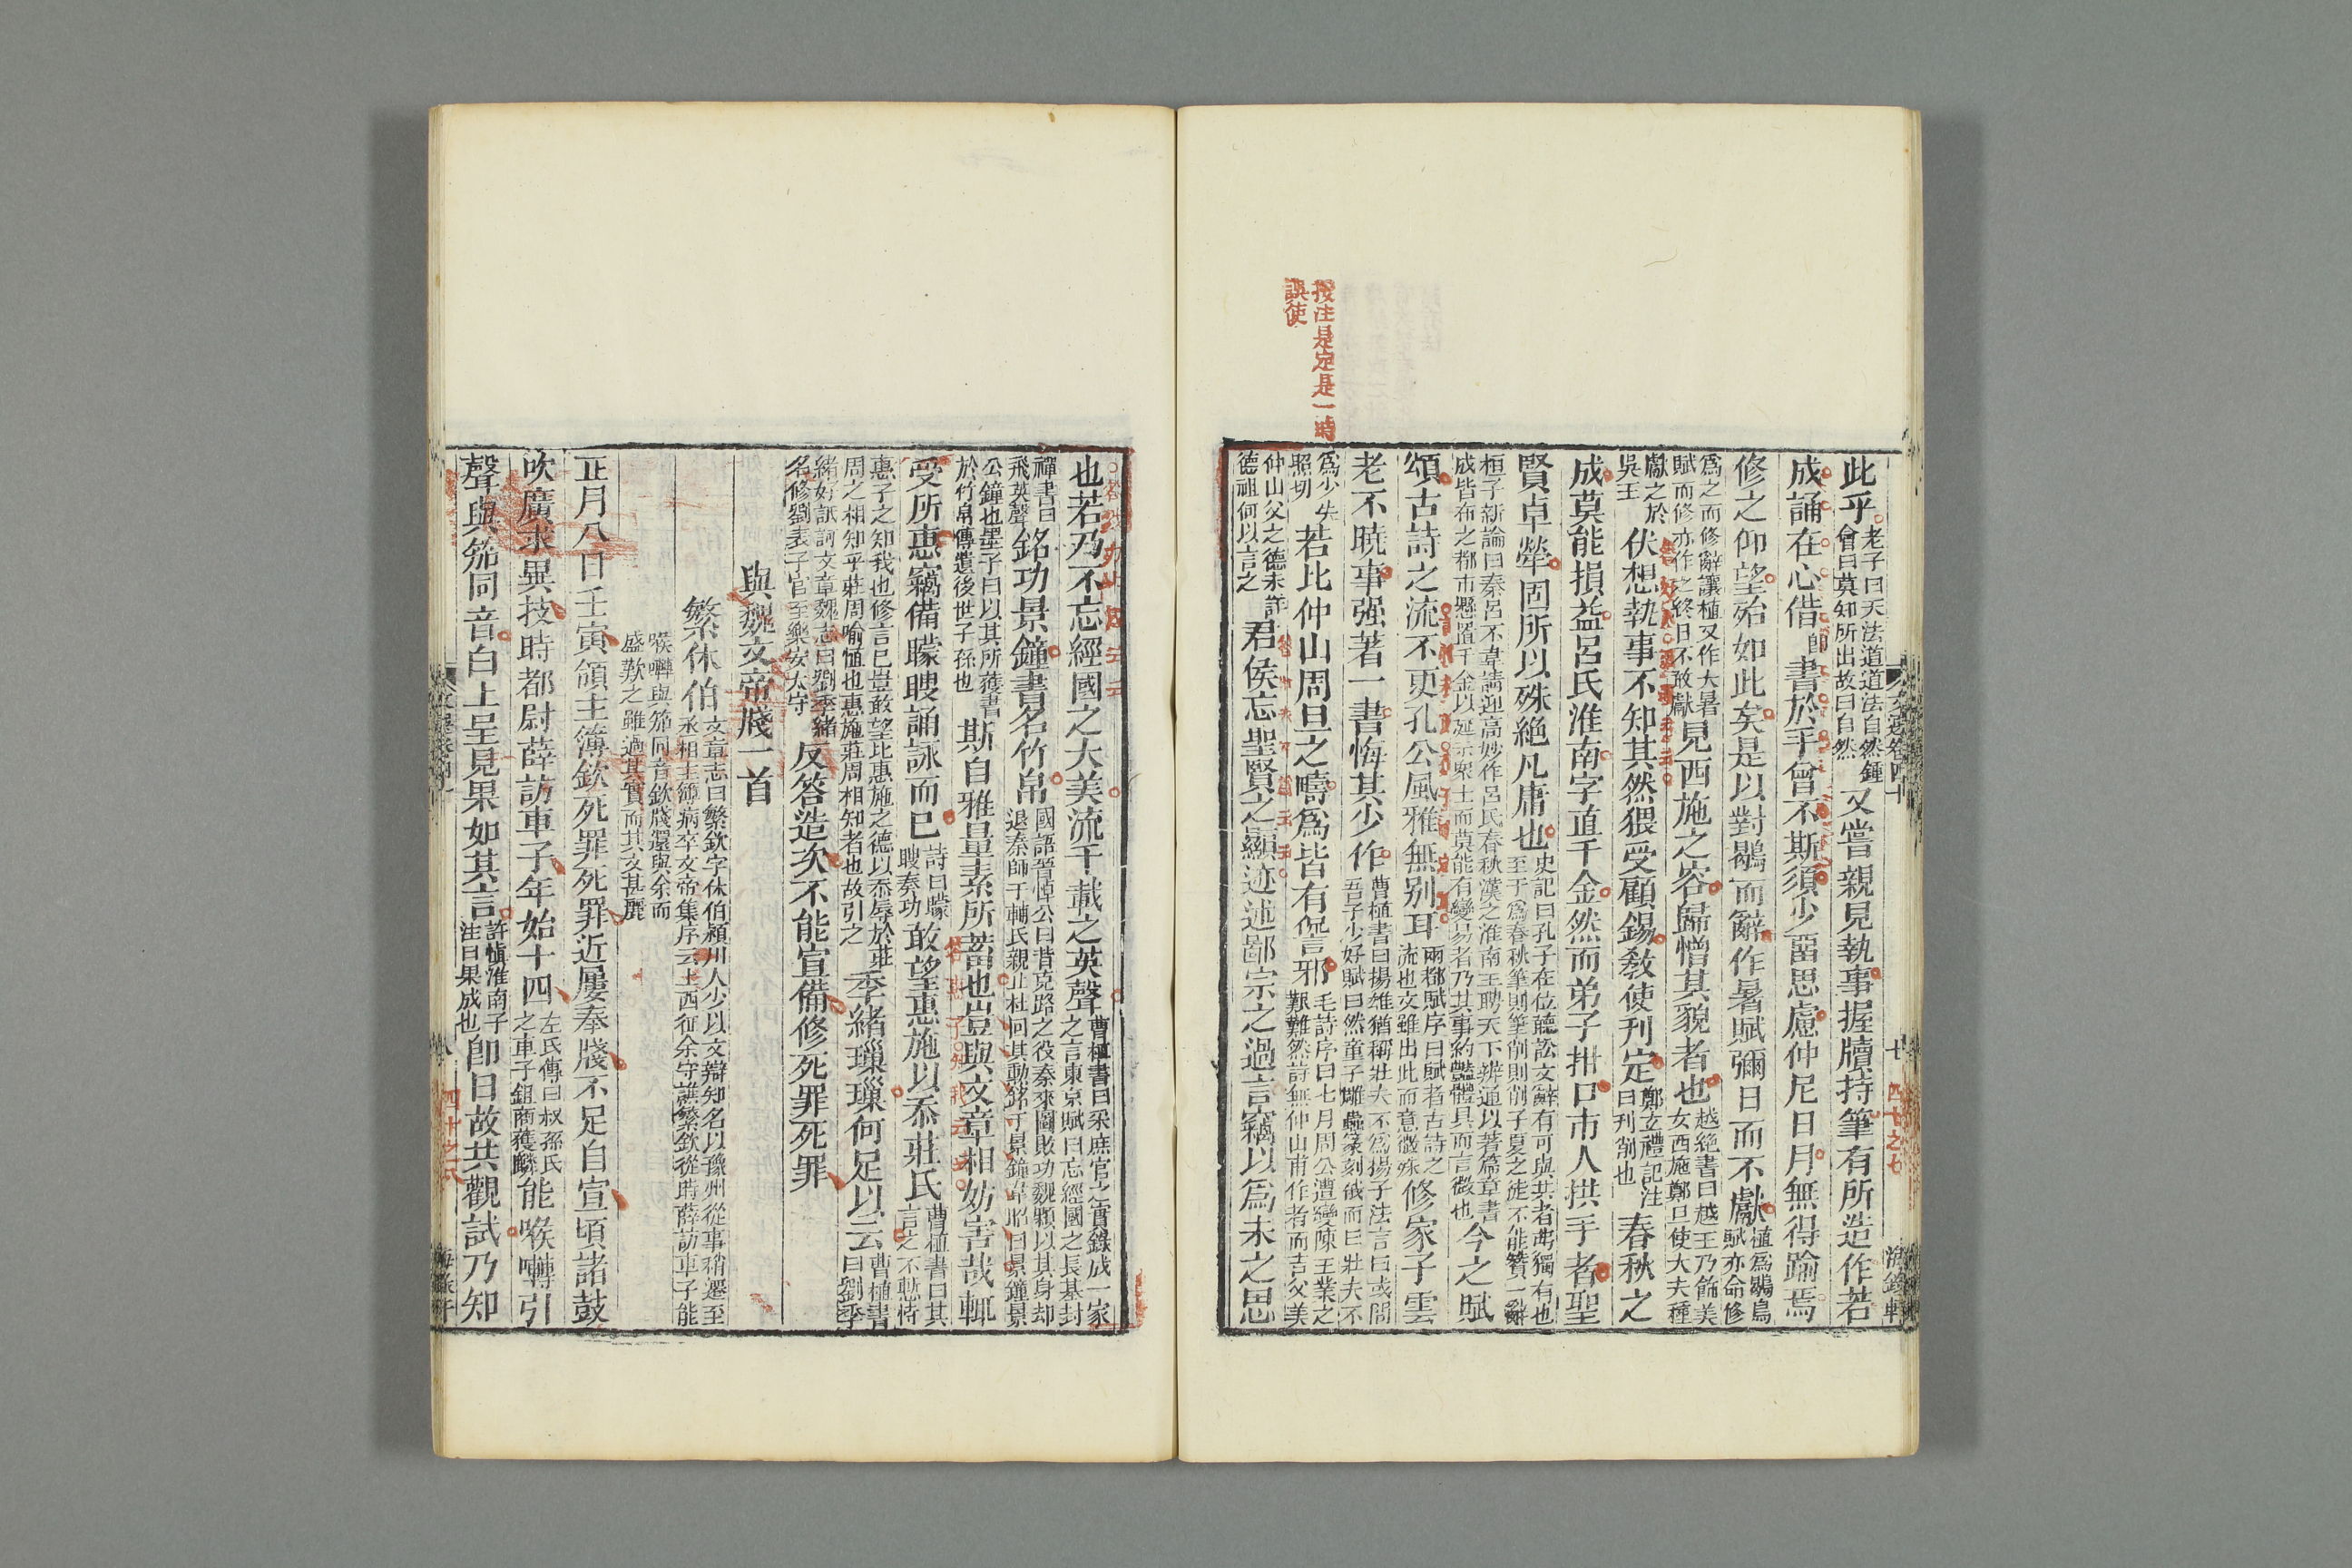 按注是定是一時
誤使
此乎老子曰天法道道法自然鍾會曰莫知所出故曰自然又嘗親見執事握牘持筆有所造作若
成誦在心借書於手曾不斯須少畱思慮仲尼日月無得踰焉
修之仰望殆如此矣是以對鶡而辭作暑賦彌日而不獻植爲鶡鳥賦亦命修
爲之而修辭讓植又作大暑賦而修亦作之終日不敢獻見西施之容歸憎其貌者也越絶書曰越王乃飾美女西施鄭旦使大夫種
獻之於吳王伏想執事不知其然猥受顧錫敎使刋定鄭玄禮記注曰刋削也春秋之
成莫能損益呂氏淮南字直千金然而弟子拑口市人拱手者聖
賢卓犖固所以殊絶凡庸也史記曰孔子在位聽訟文辭有可與共者弗獨有也至于爲春秋筆則筆削則削子夏之徒不能贊一辭
桓子新論曰秦呂不韋請迎高妙作呂氏春秋漢之淮南王聘天下辨通以著篇章書成皆布之都市懸置千金以延示衆士而莫能有變易者乃其事約艶體具而言微也今之賦
頌古詩之流不更孔公風雅無别耳兩都賦序曰賦者古詩之流也文雖出此而意微殊修家子雲
老不曉事强著一書悔其少作曹植書曰揚雄猶稱壯夫不爲揚子法言曰或問吾子少好賦曰然童子雕蟲篆刻俄而曰壯夫不
爲少失照切若比仲山周旦之疇爲皆有㑴言邪毛詩序曰七月周公遭變陳王業之艱難然詩無仲山甫作者而吉父美
仲山父之德未詳德祖何以言之君侯忘聖賢之顯迹述鄙宗之過言竊以爲未之思
也若乃不忘經國之大美流千載之英聲曹植書曰采庶官之實錄成一家之言東京賦曰忘經國之長基封
禪書曰飛英聲銘功景鐘書名竹帛國語晉悼公曰昔克路之役秦來圖敗功魏顆以其身却退秦師于輔氏親止杜回其勳銘于景鐘韋昭曰景鐘景
公鐘也墨子曰以其所獲書於竹帛傳遺後世子孫也斯自雅量素所蓄也豈與文章相妨害哉輒
受所惠竊備矇瞍誦詠而已詩曰矇瞍奏功敢望惠施以忝莊氏曹植書曰其言之不慙恃
惠子之知我也修言已豈敢望比惠施之德以忝辱於莊周之相知乎莊周喻植也惠施莊周相知者也故引之季緒璅璅何足以云曹植書曰劉季
緒好詆訶文章魏志曰劉季緒名修劉表子官至樂安太守反答造次不能宣備修死罪死罪
與魏文帝牋一首
繁休伯文章志曰繁欽字休伯潁川人少以文辯知名以豫州從事稍遷至丞相主簿病卒文帝集序云上西征余守譙繁欽從時薛訪車子能
喉囀與笳同音欽牋還與余而盛歎之雖過其實而其文甚麗
正月八日壬寅領主簿欽死罪死罪近屢奉牋不足自宣頃諸鼓
吹廣求異技時都尉薛訪車子年始十四左氏傳曰叔孫氏之車子鉏商獲麟能喉囀引
聲與笳同音白上呈見果如其言許愼淮南子注曰果成也卽日故共觀試乃知